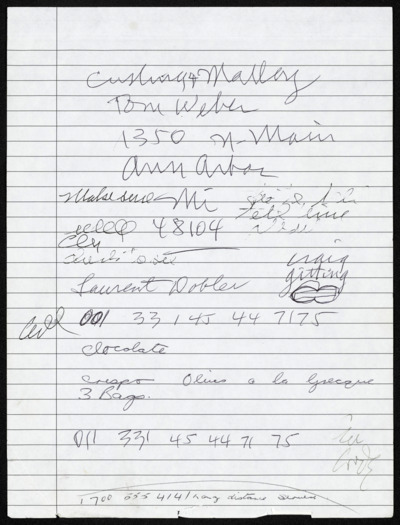 Cushing & Malloy
Tom Weber
1350 N. Main
Ann Arbor
Make sure Mi
48104
Craig
gitting
Laurent Dobler
Call 001 33 1 45 44 71 75
Chocolate
Crespo Olives a la Grecque
3 Bags.
011 331 45 44 71 75
1 700 555 4141 long distance service